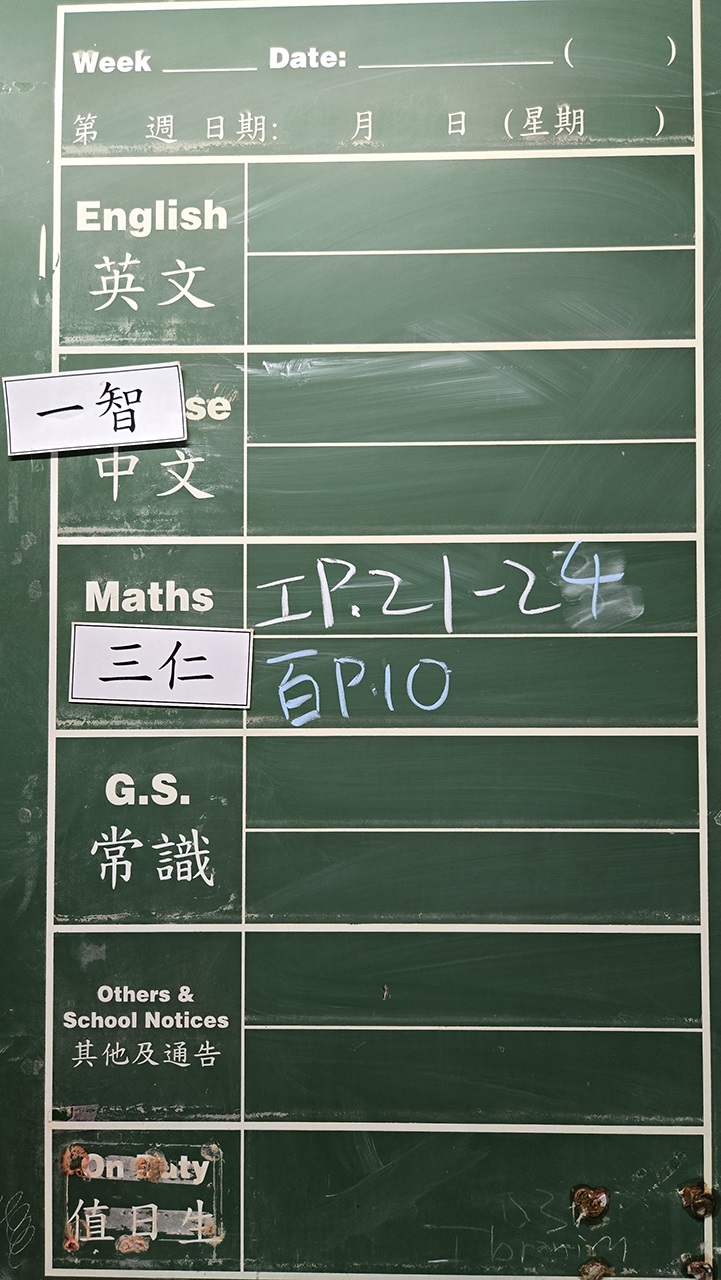 Week ____ Date: ________ ( )
第 週 日期: 月 日 (星期 )
English
英文
一智
se
中文
Maths
工P.21-24
三仁
百P.10
G.S.
常識
Others &
School Notices
其他及通告
On Duty
值日生